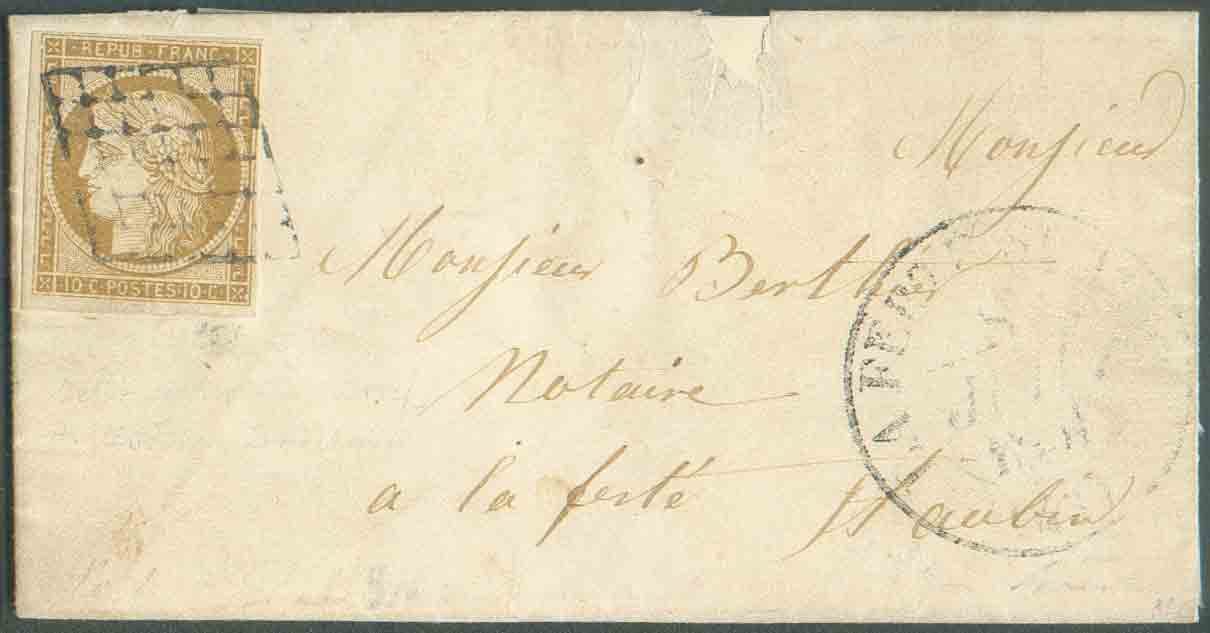 REPUB · FRANC ·
10 · C · POSTES · 10 · C
Monsieur
Monsieur Berthier
Notaire
a la ferté St aubin
LA FERTE